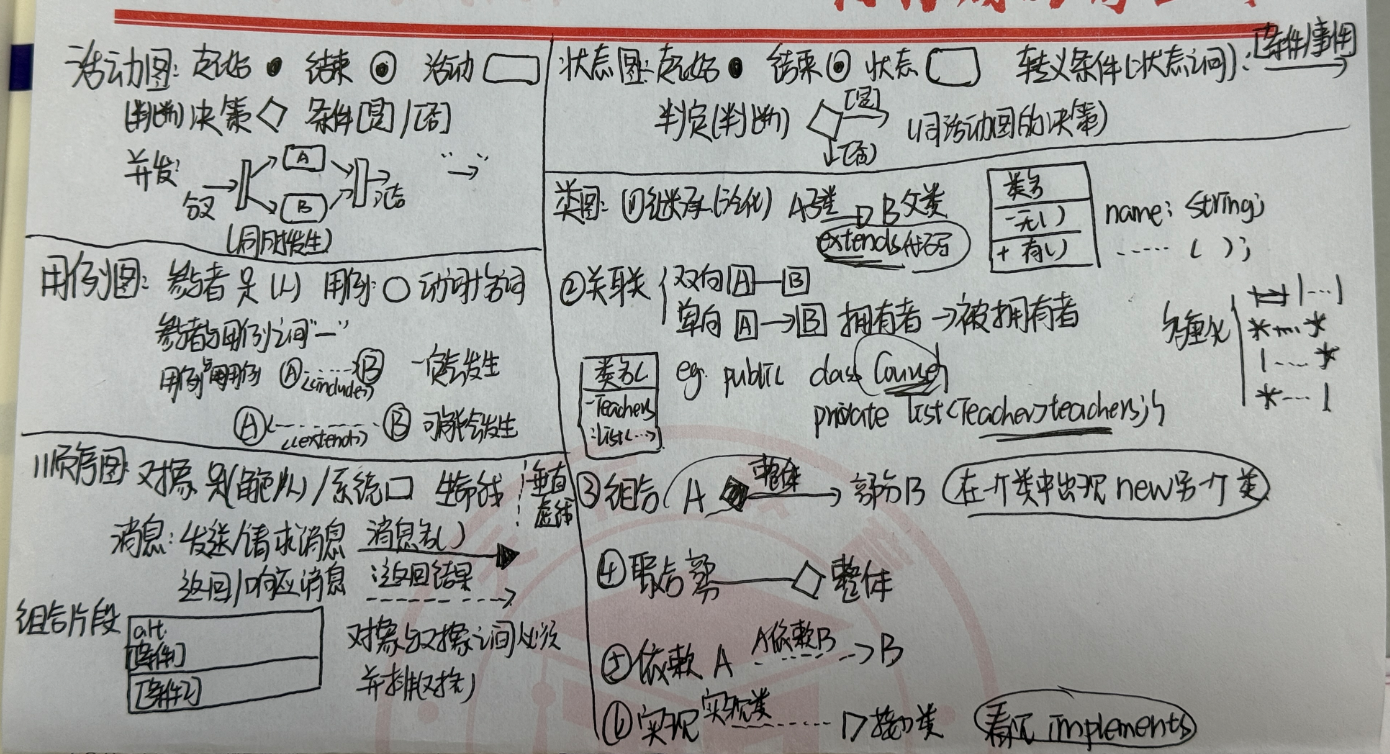 活动图: 起始 结束 活动
(判断) 决策 条件[是]/[否]
并发:
分叉 A B 汇合
(同时发生)
用例图: 参与者 是(人) 用例: 动词+名词
参与者与用例之间"—"
用例与用例 A <<include>> B 一定会发生
A <<extend>> B 可能会发生
顺序图: 对象 是(角色/人)/系统 生命线 垂直虚线
消息: 发送/请求消息 消息名()
返回/响应消息 :返回结果
组合片段
alt
[条件1]
[条件2]
对象与对象之间必须
并排
状态图: 起始 结束 状态 转义条件(状态之间): [条件/事件]
判定(判断) [是] (同活动图的决策)
[否]
类图: ①继承(泛化) A子类 B父类
extends代码
类名
-无()
+有()
name: string;
( );
②关联 双向 A B
单向 A B 拥有者→被拥有者
多重化
1...1
*...*
1...*
*...1
类名(
-Teachers
:List<...>
eg. public class Course{
private List<Teacher>teachers;}
③组合( A 整体 部分B 在一个类中出现new另一个类
④聚合 部 整体
⑤依赖 A A依赖B B
⑥实现 实现类 接口类 看见 implements